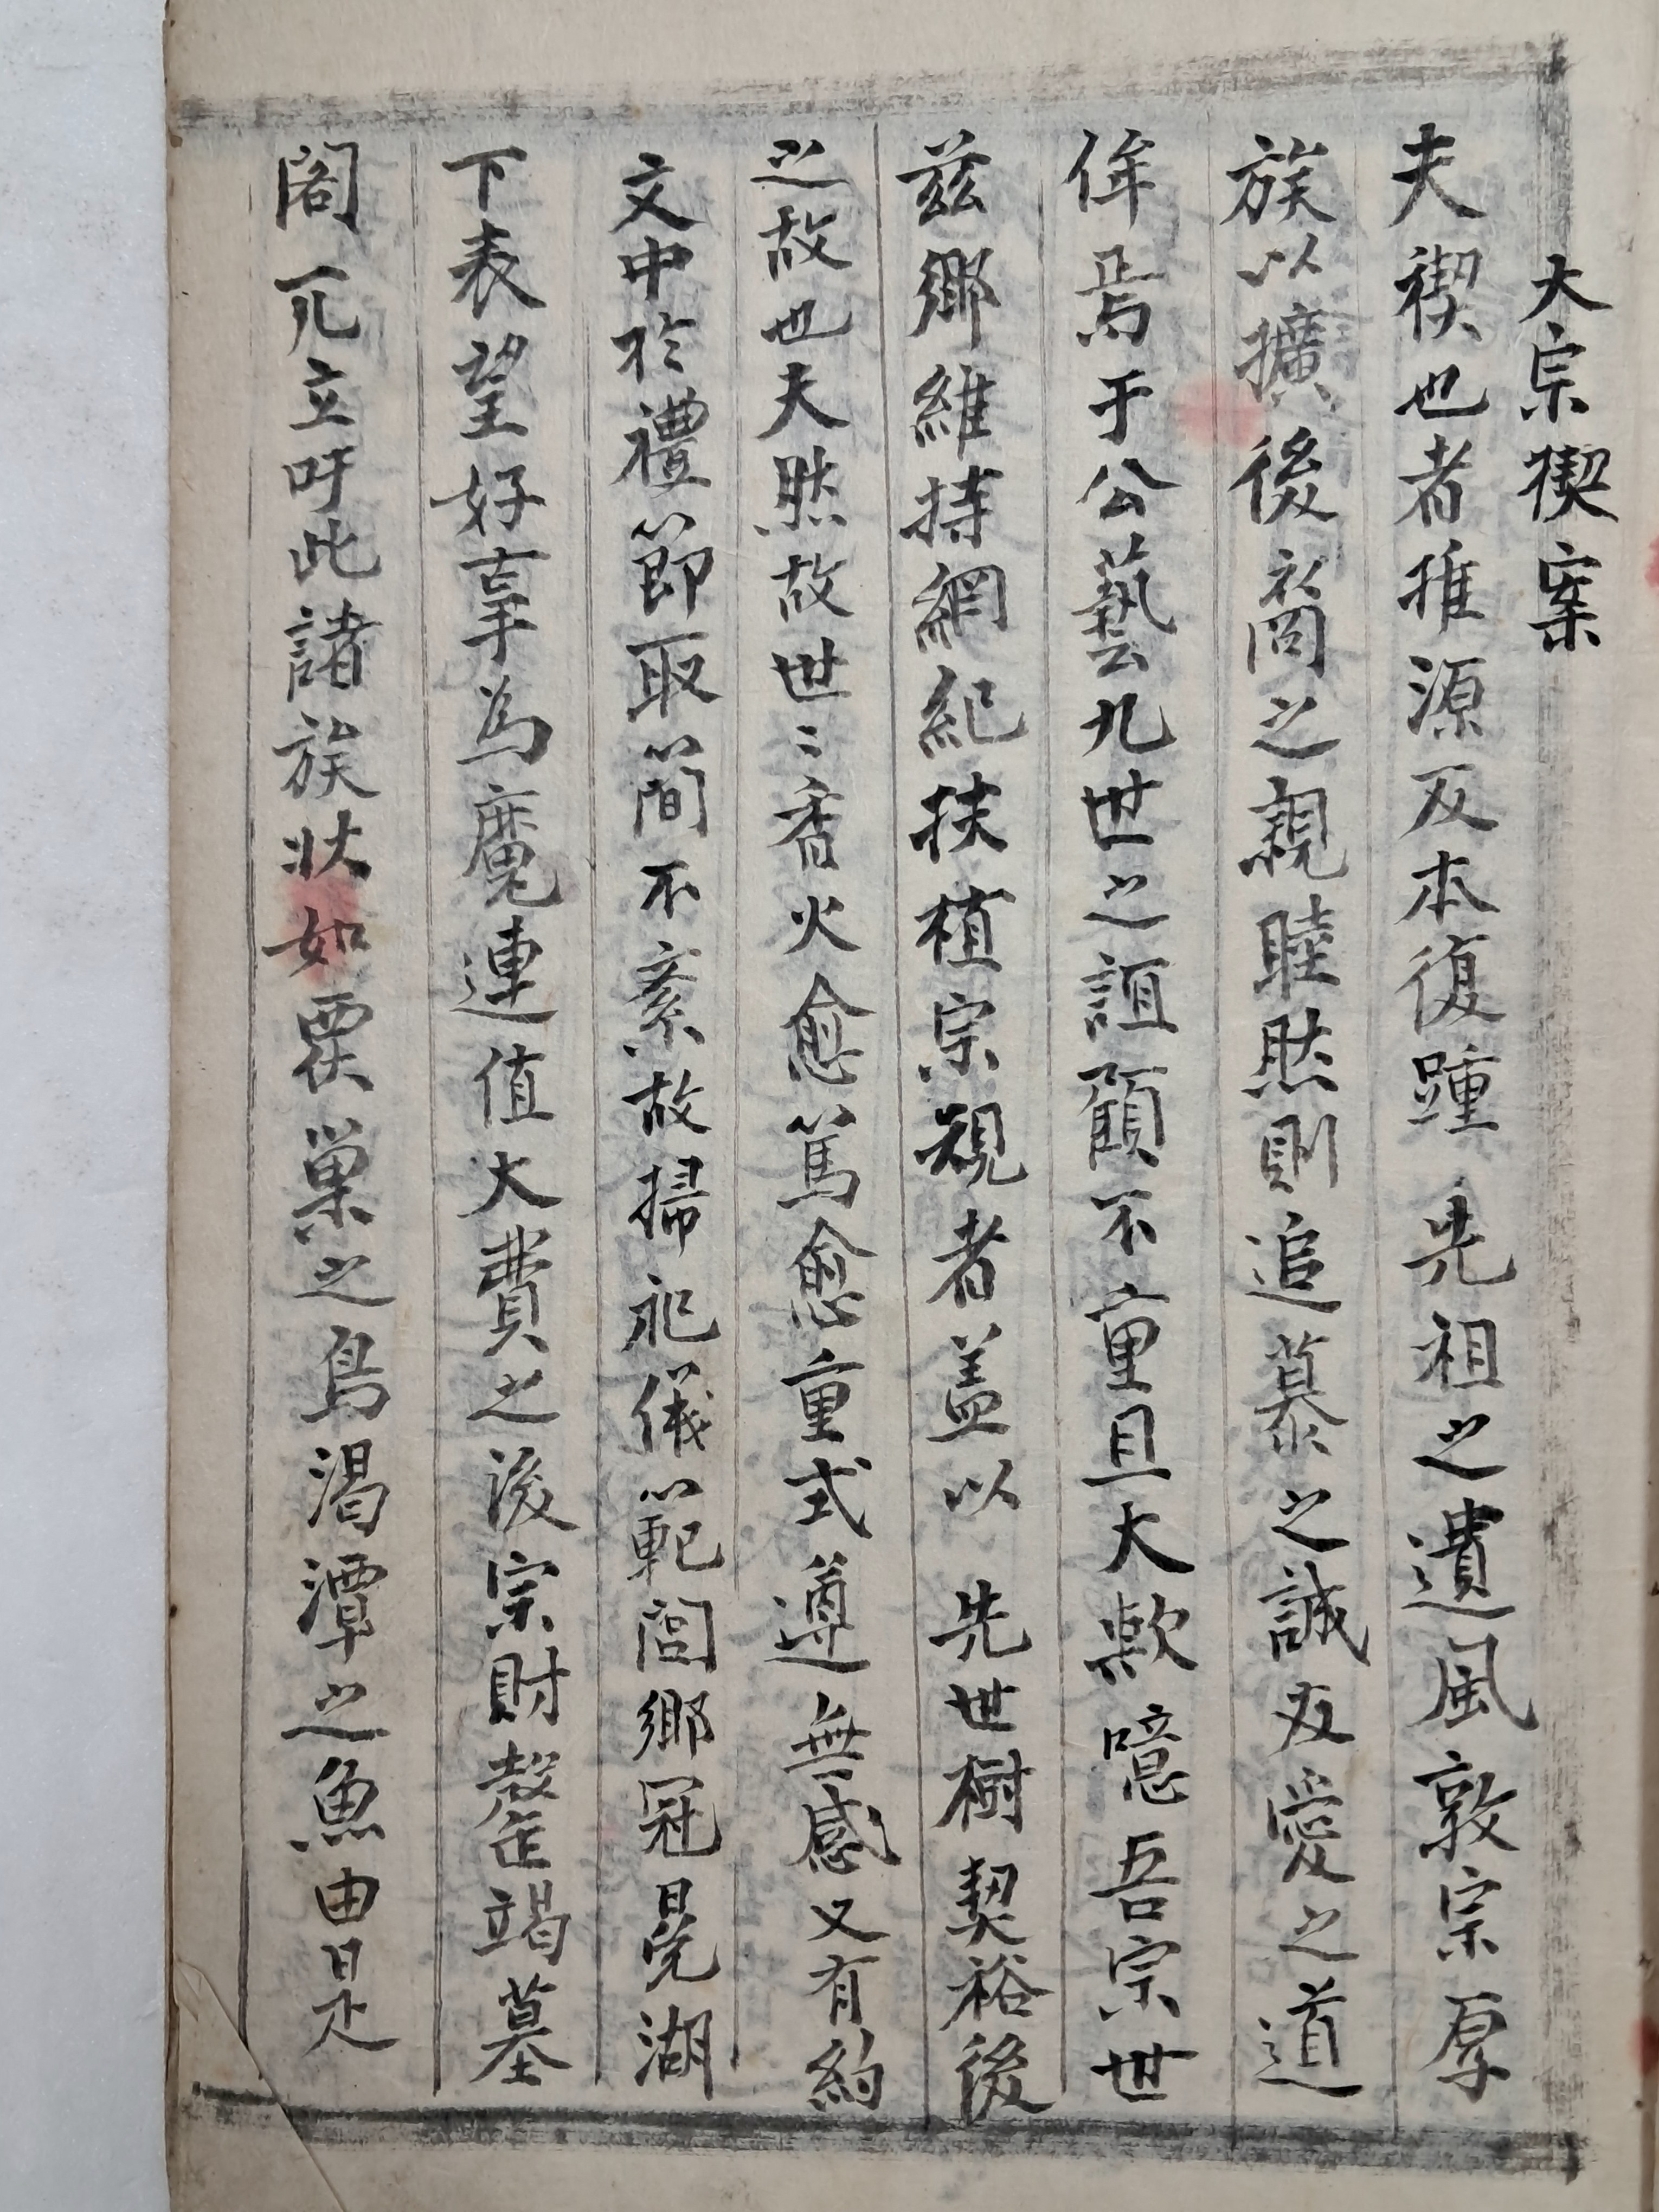 大宗禊案
夫禊也者推源反本復踵先祖之遺風敦宗厚
族以擴後裔之親睦然則追慕之誠友愛之道
侔焉于公藝九世之誼顧不重且大歟噫吾宗世
玆鄕維持綱紀扶植宗規者盖以先世樹契裕後
之故也夫然故世〻香火愈篤愈重式遵無感又有約
文中於禮節取簡不紊故掃祀儀範閭鄕冠冕湖
下表望好事爲魔連值大費之後宗財殆竭墓
閣兀立吁此諸族狀如覆巢之鳥渴潭之魚由是